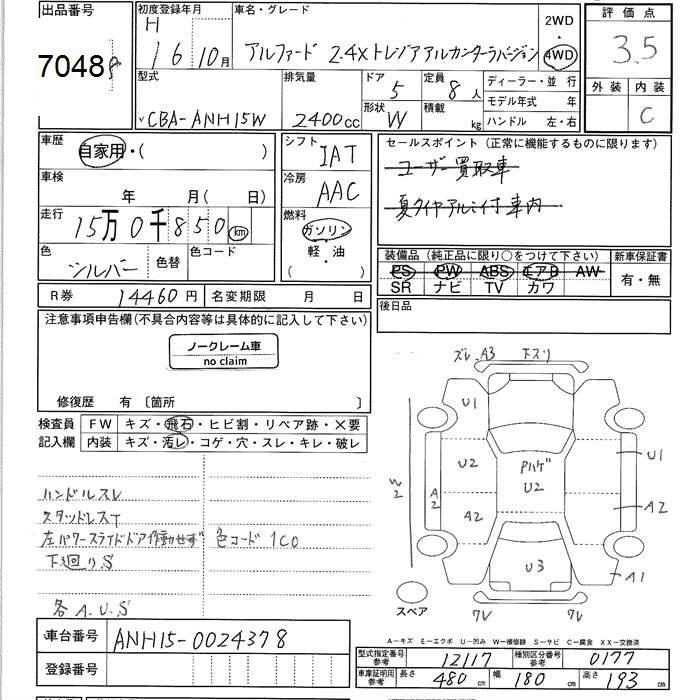 出品番号 初度登録年月 車名・グレード 2WD 評価点
7048 H 16 10月 アルファード 2.4X トレゾア アルカンターラバージョン 4WD 3.5
型式 排気量 ドア 定員 ディーラー・並 行 外装 内装
CBA-ANH15W 2400cc 5 8人 モデル年式 年 C
形状 W 積載 kg ハンドル 左・右
車歴 自家用・( ) シフト IAT セールスポイント (正常に機能するものに限ります)
ユーザー買取車
車検 年 月( ) 冷房 AAC
夏タイヤアルミ付 車内
走行 15万0千850km 燃料 ガソリン
軽・油
( )
色 シルバー 色替 色コード
装備品 (純正品に限り○をつけて下さい) 新車保証書
PS PW ABS エアB AW 有・無
SR ナビ TV カワ
R券 14460円 名変期限 月 日 後日品
注意事項申告欄(不具合内容等は具体的に記入して下さい)
ノークレーム車
no claim
修復歴 有 〔箇所
検査員 FW キズ・飛石・ヒビ割・リペア跡・×要
記入欄 内装 キズ・汚レ・コゲ・穴・スレ・キレ・破レ
ハンドルスレ
スタッドレスT
左パワースライドドア作動せず 色コード 1C0
下廻りS
各A.U.S
ズレ.A3 下スリ
U1
U2 Pハゲ U1
U2
W2 A2 A2 A2
U3 A1
スペア ワレ ワレ
A-キズ E-エクボ U-凹み W-補修跡 S-サビ C-腐食 XX-交換済
車台番号 ANH15-0024378
登録番号
型式指定番号 参考 12117 種別区分番号 参考 0177
車庫証明用 参考 長さ 480cm 幅 180cm 高さ 193cm